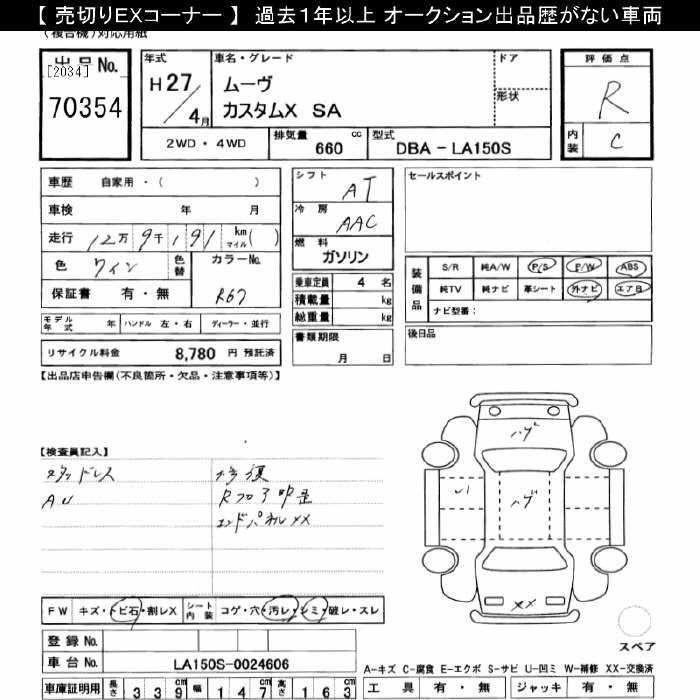 【 売切りEXコーナー 】 過去１年以上 オークション出品歴がない車両
(複合機)対応用紙
出品No.
[2034]
70354
年式
H27/4月
車名・グレード
ムーヴ
カスタムX SA
ドア
形状
評価点
R
内装
C
2WD・4WD
排気量
660 cc
型式
DBA - LA150S
車歴 自家用・( )
車検 年 月
走行 12万 9千 191 km マイル( )
色 ワイン
色替
カラーNo.
R67
保証書 有・無
モデル年式 年
ハンドル 左・右
ディーラー・並行
リサイクル料金 8,780 円 預託済
シフト
AT
冷房
AAC
燃料
ガソリン
乗車定員 4 名
積載量 kg
総重量 kg
書類期限
月 日
セールスポイント
装備品
S/R 純A/W P/S P/W ABS
純TV 純ナビ 革シート 外ナビ エアB
ナビ型番:
後日品
【出品店申告欄(不良箇所・欠品・注意事項等)】
【検査員記入】
スタッドレス
AU
Rフロア
エンドパネルXX
ハゲ
U1
ハゲ
XX
スペア
FW キズ・トビ石・割レX
シート内装 コゲ・穴・汚レ・シミ・破レ・スレ
登録No.
車台No. LA150S-0024606
車庫証明用 長さ 339cm 幅 147cm 高さ 163cm
A-キズ C-腐食 E-エクボ S-サビ U-凹ミ W-補修 XX-交換済
工具 有・無 ジャッキ 有・無